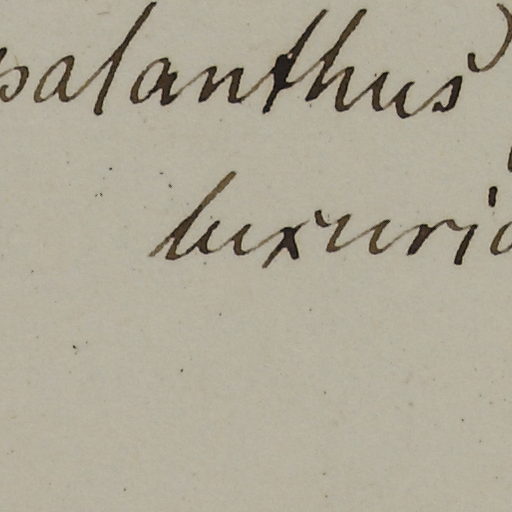 palanthus
luxuri